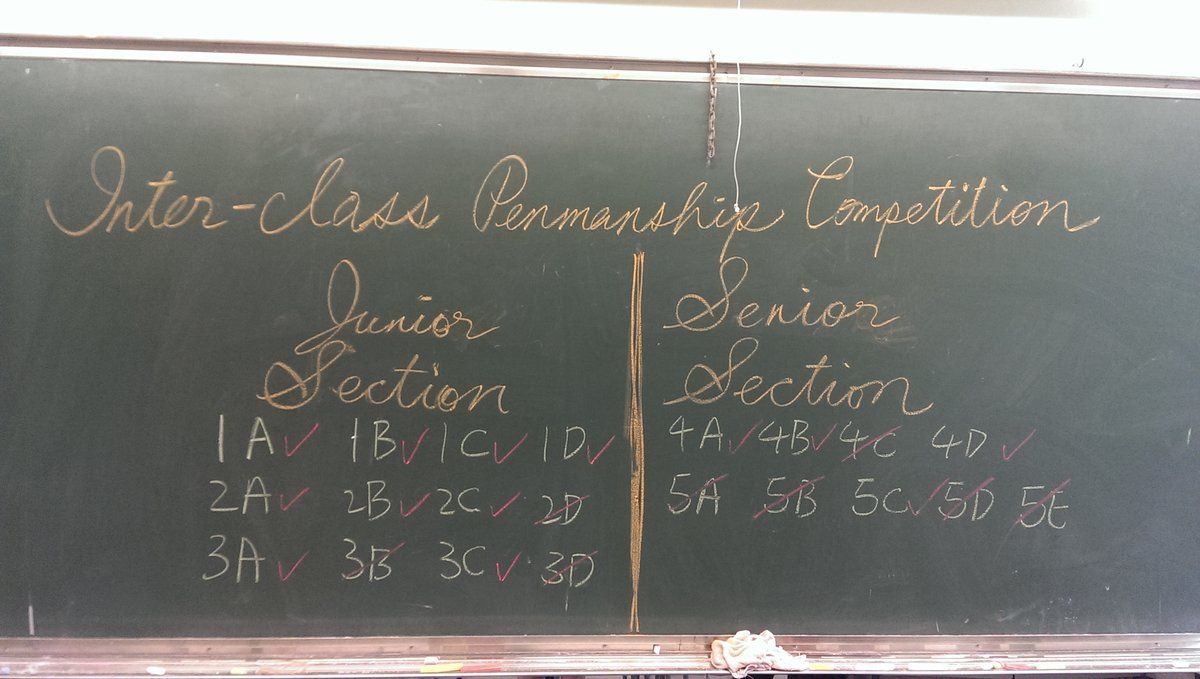 Inter-Class Penmanship Competition
Junior
Section
1A✓ 1B✓ 1C✓ 1D✓
2A✓ 2B✓ 2C✓ 2D
3A✓ 3B 3C✓ 3D
Senior
Section
4A✓ 4B✓ 4C 4D✓
5A 5B 5C✓ 5D 5E